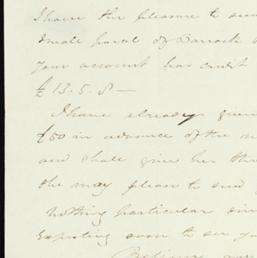 I have the pleasure to
small parcel of
Your account has credit
£ 13. 5. 8 —
I have already given
£50 in advance of the
and shall give her
she may please to send
Nothing particular
expecting soon to see you
Believe me